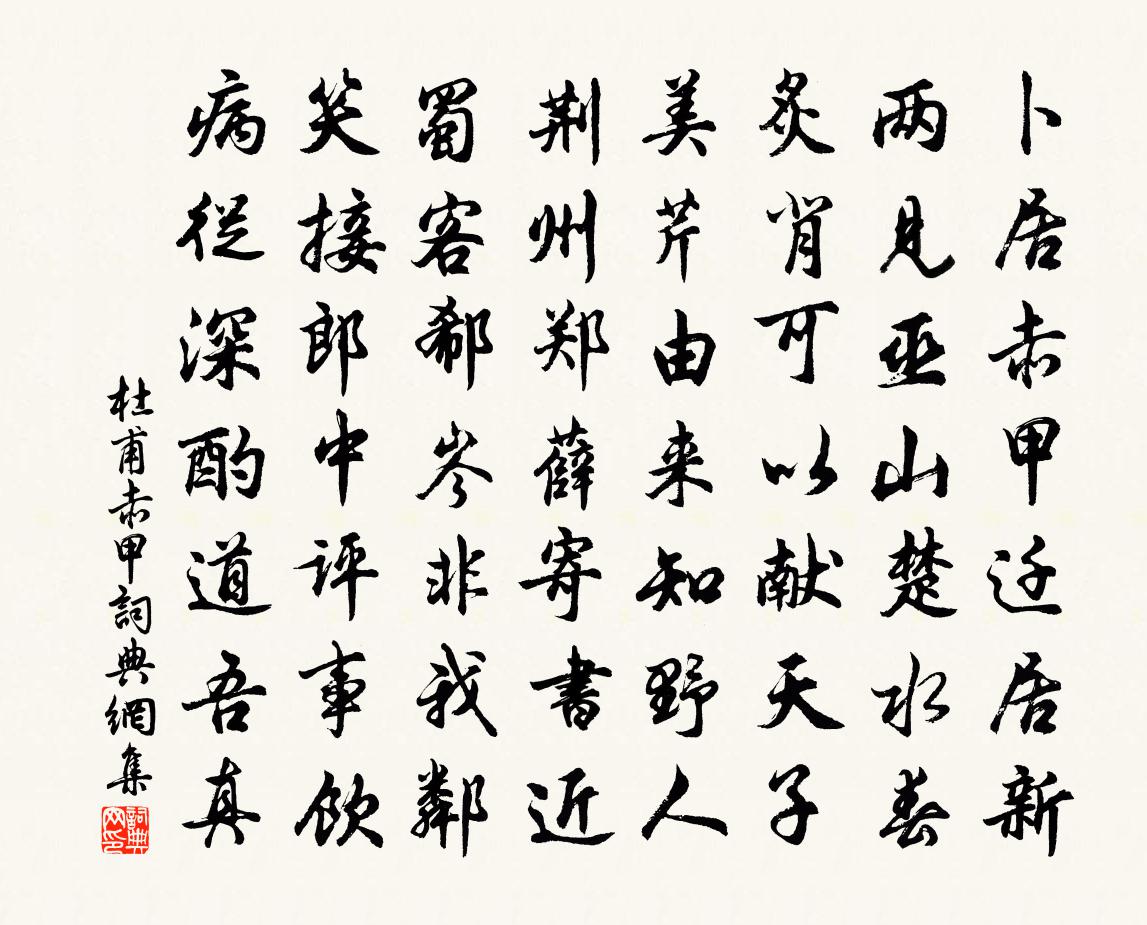 卜居赤甲迁居新
两见巫山楚水春
炙背可以献天子
美芹由来知野人
荆州郑薛寄書近
蜀客郗岑非我鄰
笑接郎中评事饮
病從深酌道吾真
杜甫赤甲詞典網集
詞典网印